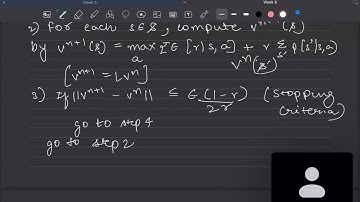 Week 5
Week 6
2) For each s∈S, compute vⁿ⁺¹(s)
by vⁿ⁺¹(s) = max_a E[r|s,a] + r Σ_s' p(s'|s,a)
vⁿ(s')
[vⁿ⁺¹ = Lvⁿ]
3) If ||vⁿ⁺¹ - vⁿ|| ≤ ε(1-r)/2r (stopping
criteria)
go to step 4
go to step 2